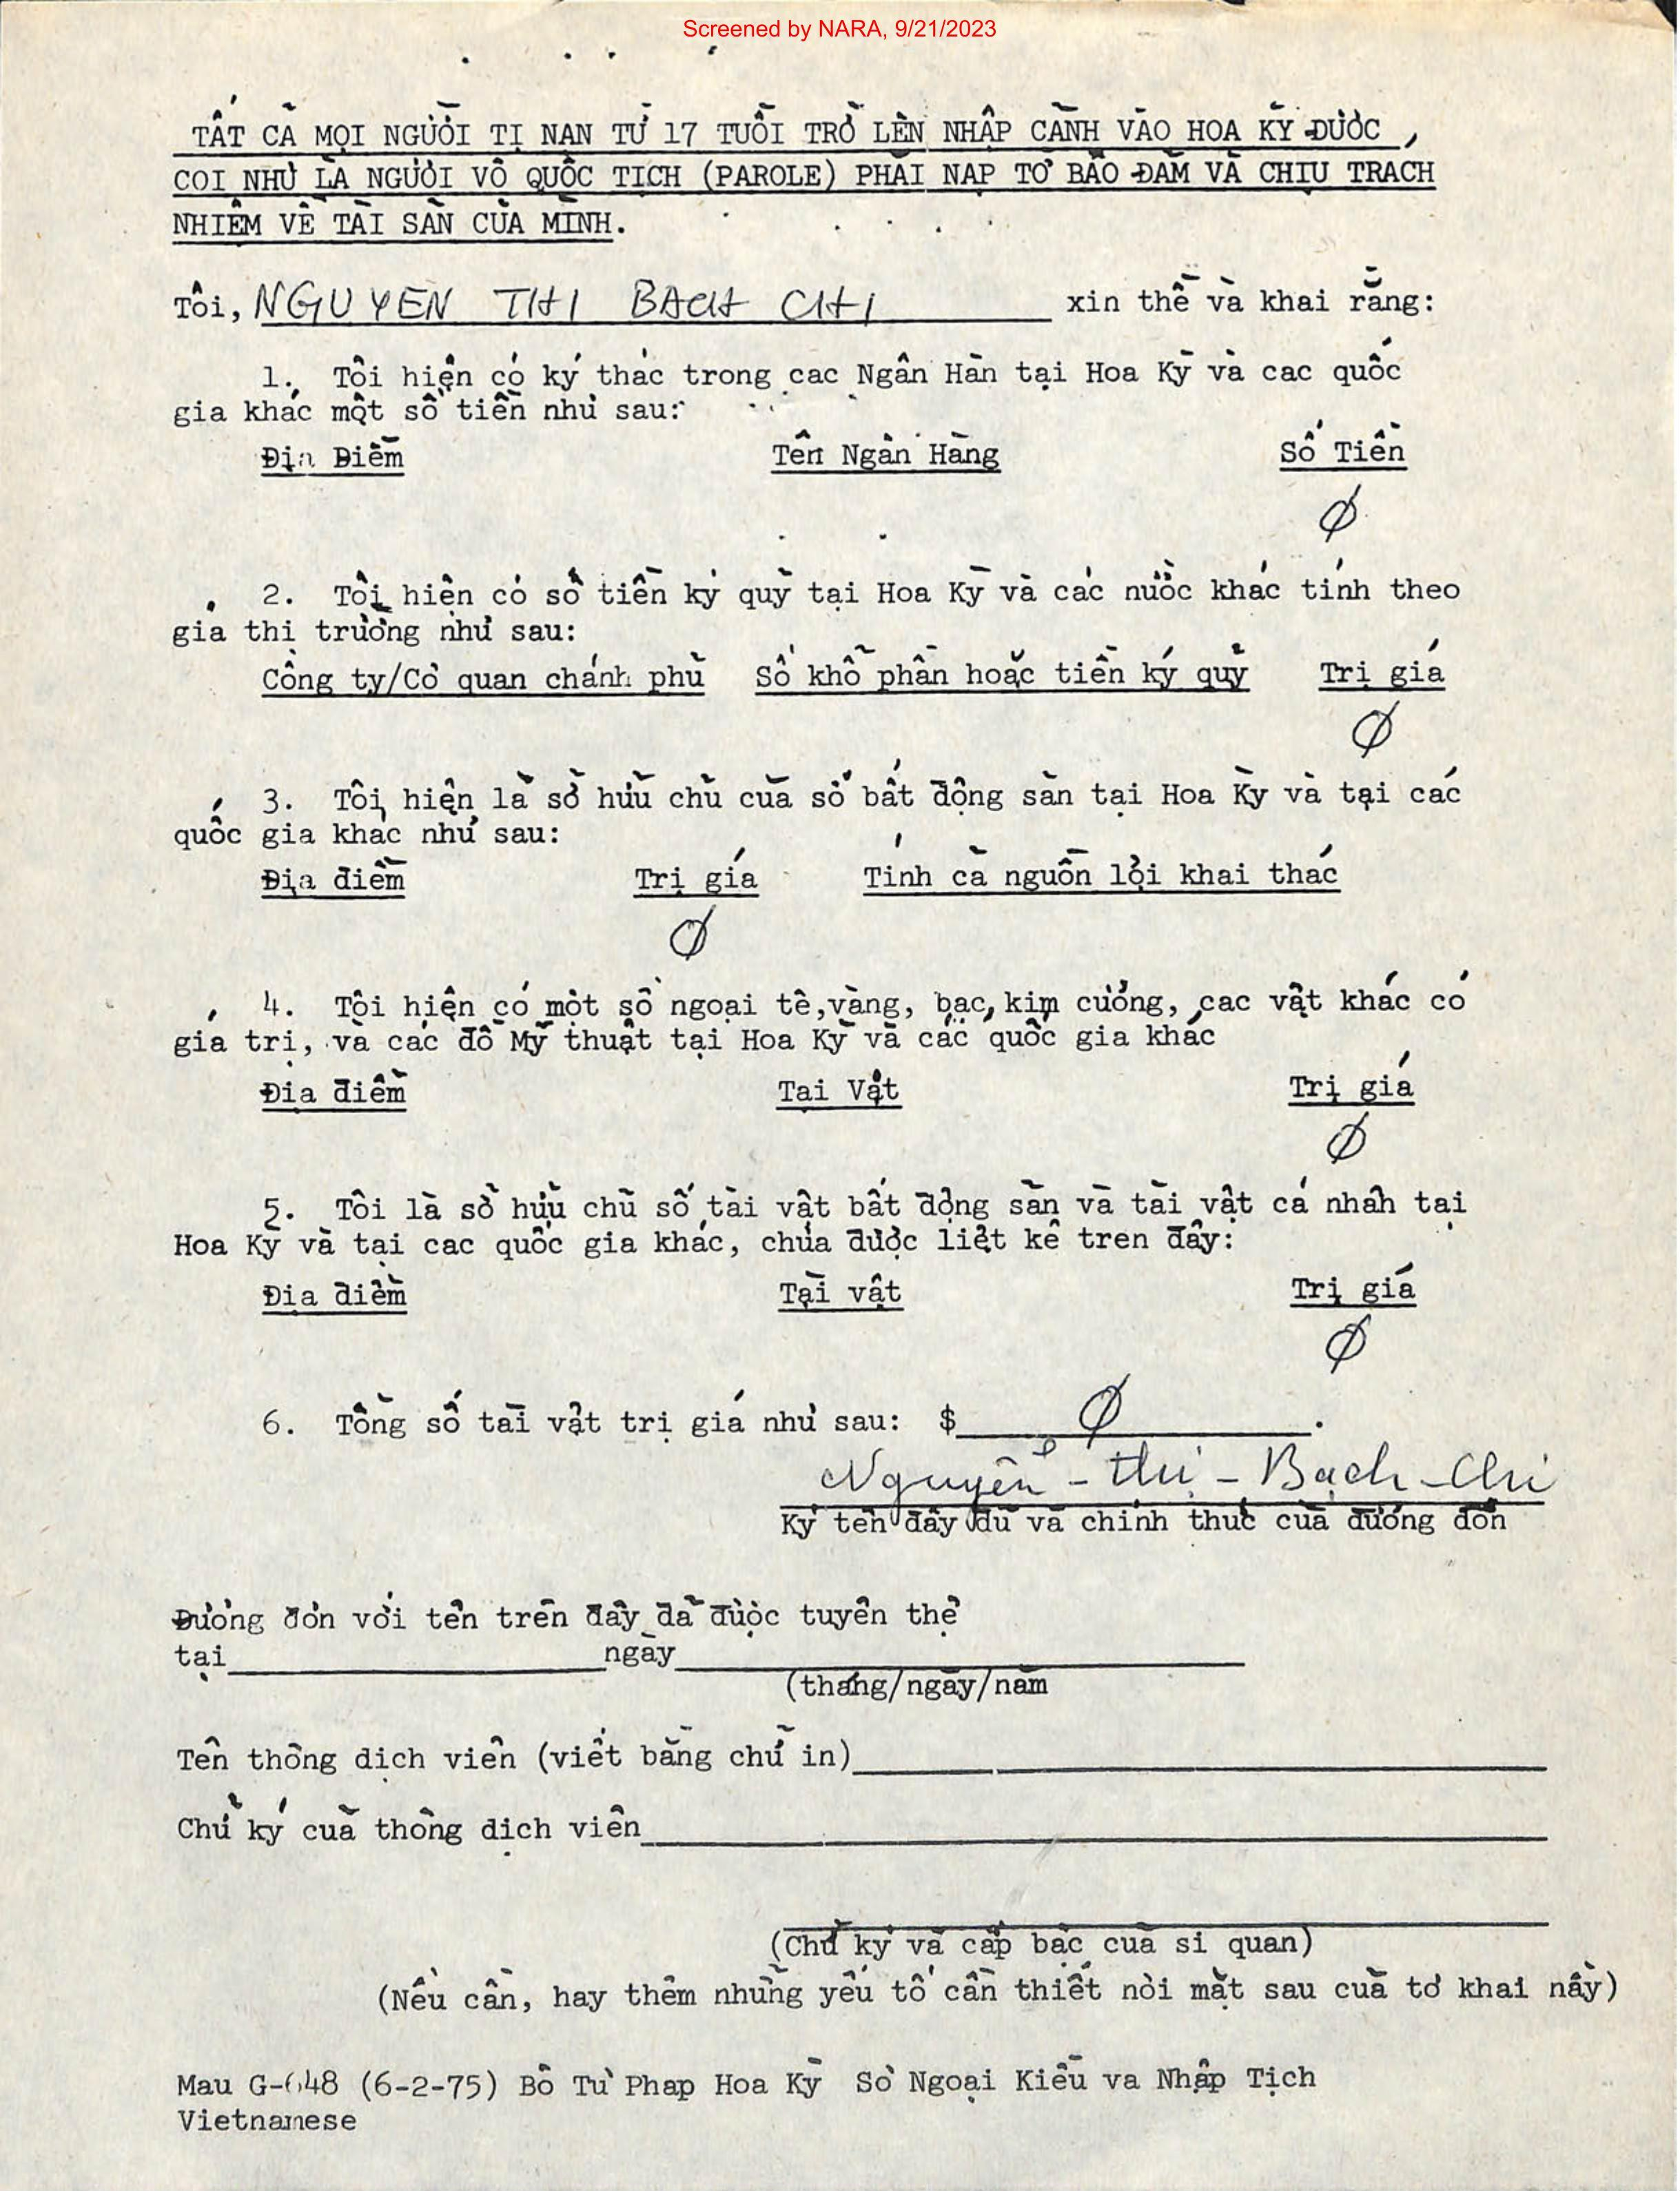 Screened by NARA, 9/21/2023
TẤT CẢ MỌI NGƯỜI TỊ NẠN TỪ 17 TUỔI TRỞ LÊN NHẬP CẢNH VÀO HOA KỲ ĐƯỢC,
COI NHƯ LÀ NGƯỜI VÔ QUỐC TỊCH (PAROLE) PHẢI NẠP TỜ BẢO ĐẢM VÀ CHỊU TRÁCH
NHIỆM VỀ TÀI SẢN CỦA MÌNH.
Tôi, NGUYEN THI BACH CHI xin thề và khai rằng:
1. Tôi hiện có ký thác trong các Ngân Hàn tại Hoa Kỳ và các quốc
gia khác một số tiền như sau:
Địa Điểm Tên Ngân Hàng Số Tiền
Ø
2. Tôi hiện có số tiền ký quỹ tại Hoa Kỳ và các nước khác tính theo
giá thị trường như sau:
Công ty/Cơ quan chánh phủ Số khổ phần hoặc tiền ký quỹ Trị giá
Ø
3. Tôi hiện là sở hữu chủ của số bất động sản tại Hoa Kỳ và tại các
quốc gia khác như sau:
Địa điểm Trị giá Tính cả nguồn lợi khai thác
Ø
4. Tôi hiện có một số ngoại tệ,vàng, bạc, kim cương, các vật khác có
giá trị, và các đồ Mỹ thuật tại Hoa Kỳ và các quốc gia khác
Địa điểm Tài Vật Trị giá
Ø
5. Tôi là sở hữu chủ số tài vật bất động sản và tài vật cá nhân tại
Hoa Kỳ và tại các quốc gia khác, chưa được liệt kê trên đây:
Địa điểm Tài vật Trị giá
Ø
6. Tổng số tài vật trị giá như sau: $ Ø .
Nguyễn - thị - Bạch - Chi
Ký tên đầy đủ và chính thức của đương đơn
Đương đơn với tên trên đây đã được tuyên thệ
tại ngày
(tháng/ngày/năm
Tên thông dịch viên (viết bằng chữ in)
Chữ ký của thông dịch viên
(Chữ ký và cấp bậc của sĩ quan)
(Nếu cần, hãy thêm những yếu tố cần thiết nơi mặt sau của tờ khai nầy)
Mau G-648 (6-2-75) Bộ Tư Pháp Hoa Kỳ Sở Ngoại Kiều và Nhập Tịch
Vietnamese